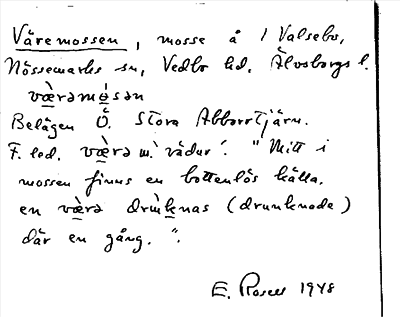 Väremossen, mosse å 1 Valsebo,
Nössemarks sn, Vedbo hd, Älvsborgs l.
væ̀rəmɵ́sən
Belägen Ö. Stora Abborrtjärn.
F. led. væ̀rə m. 'vädur'. "Mitt i
mossen finns en bottenlös källa.
en væ̀rə drɯ̀knas (drunknade)
där en gång.".
E. Rosell 1948